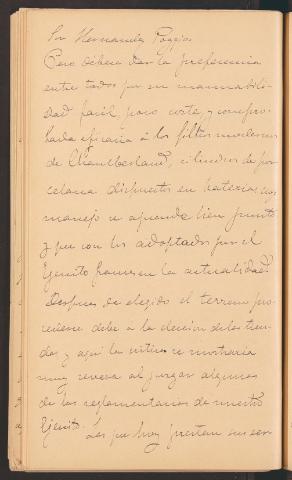 Sr Hernandez Poggio.
Pero debera dar la preferencia
entre todos por su
dad facil, poco coste, y compro-
bada eficacia á los filtros modernos
de Chamberland, cilindros de por-
celana dispuestos en baterias cuyo
manejo se aprende bien pronto
y que son los adoptados por el
Ejercito frances en la actualidad.
Despues de elegido el terreno
debe a la eleccion de las tien-
das y aqui la critica se mostraria
muy severa al juzgar algunas
de las reglamentarias de nuestro
Ejercito. Las que hoy prestan su ser-